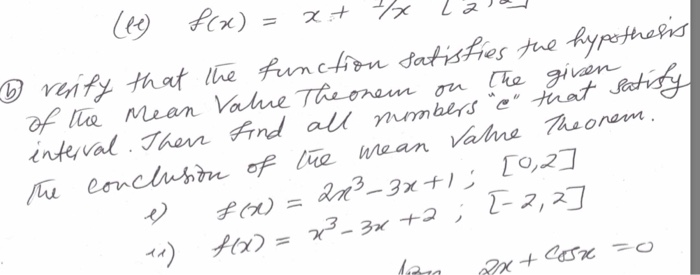 (ii) f(x) = x + 1/x [
ⓑ verify that the function satisfies the hypothesis
of the Mean Value Theorem on the given
interval. Then find all numbers "c" that satisfy
The conclusion of the mean value Theorem.
i) f(x) = 2x³ - 3x + 1 ; [0,2]
ii) f(x) = x³ - 3x + 2 ; [-2,2]
2x + cosx = 0